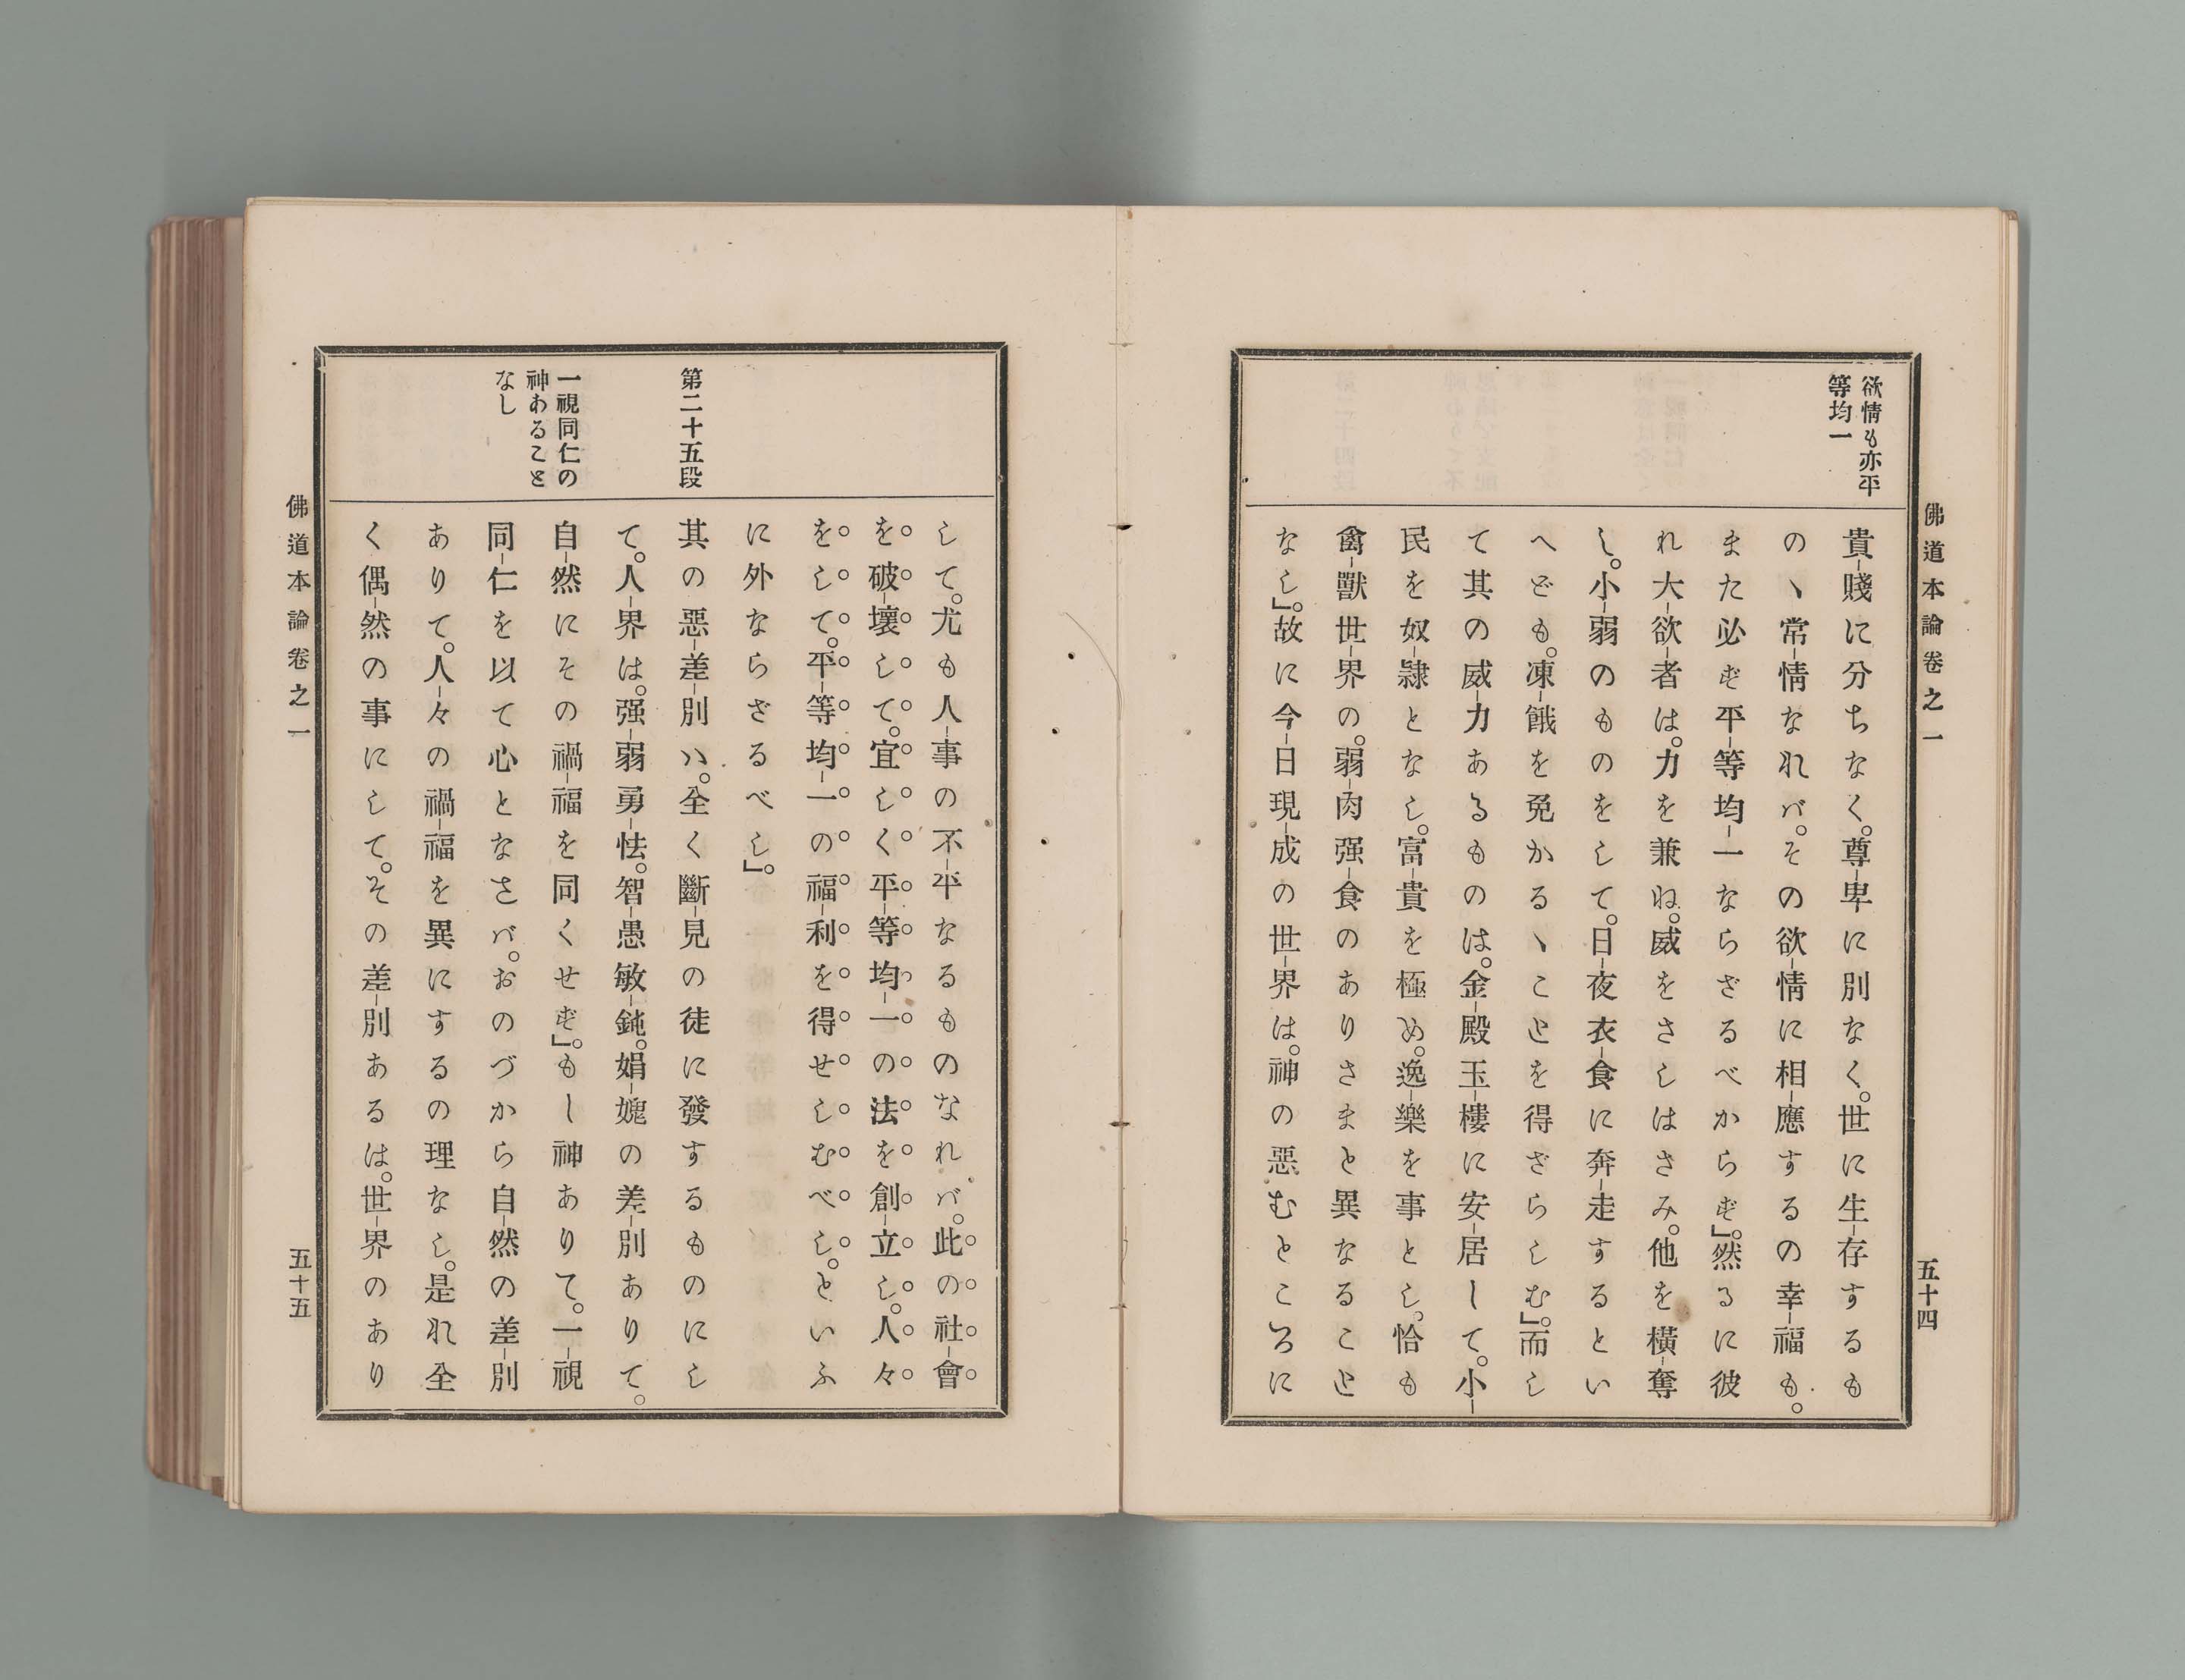 佛道本論卷之一
五十四
欲情も亦平
等均一
貴-賤に分ちなく。尊-卑に別なく。世に生-存するも
のヽ常-情なれバ。その欲-情に相-應するの幸-福も。
また必ず平-等均-一ならざるべからず』。然るに彼
れ大-欲-者は。力を兼ね。威をさしはさみ。他を橫-奪
し。小-弱のものをして。日-夜衣-食に奔-走するとい
へども。凍-餓を免かるヽことを得ざらしむ』。而し
て其の威-力あるものは。金-殿玉-樓に安-居して。小-
民を奴-隷となし。富-貴を極め。逸-樂を事とし。恰も
禽-獸世-界の。弱-肉强-食のありさまと異なること
なし』。故に今-日現-成の世-界は。神の惡むところに
して。尤も人-事の不-平なるものなれバ。此の社-會
を破-壞して。宜しく平-等均-一の法を創-立し。人々
をして。平-等均-一の福-利を得せしむべし。といふ
に外ならざるべし』。
第二十五段
其の惡-差-別ハ。全く斷-見の徒に發するものにし
て。人-界は。强-弱勇-怯。智-愚敏-鈍。娟-媸の差-別ありて。
一視同仁の
神あること
なし
自-然にその禍-福を同くせず』。もし神ありて。一-視
同-仁を以て心となさバ。おのづから自-然の差-別
ありて。人-々の禍-福を異にするの理なし。是れ全
く偶-然の事にして。その差-別あるは。世-界のあり
佛道本論卷之一
五十五